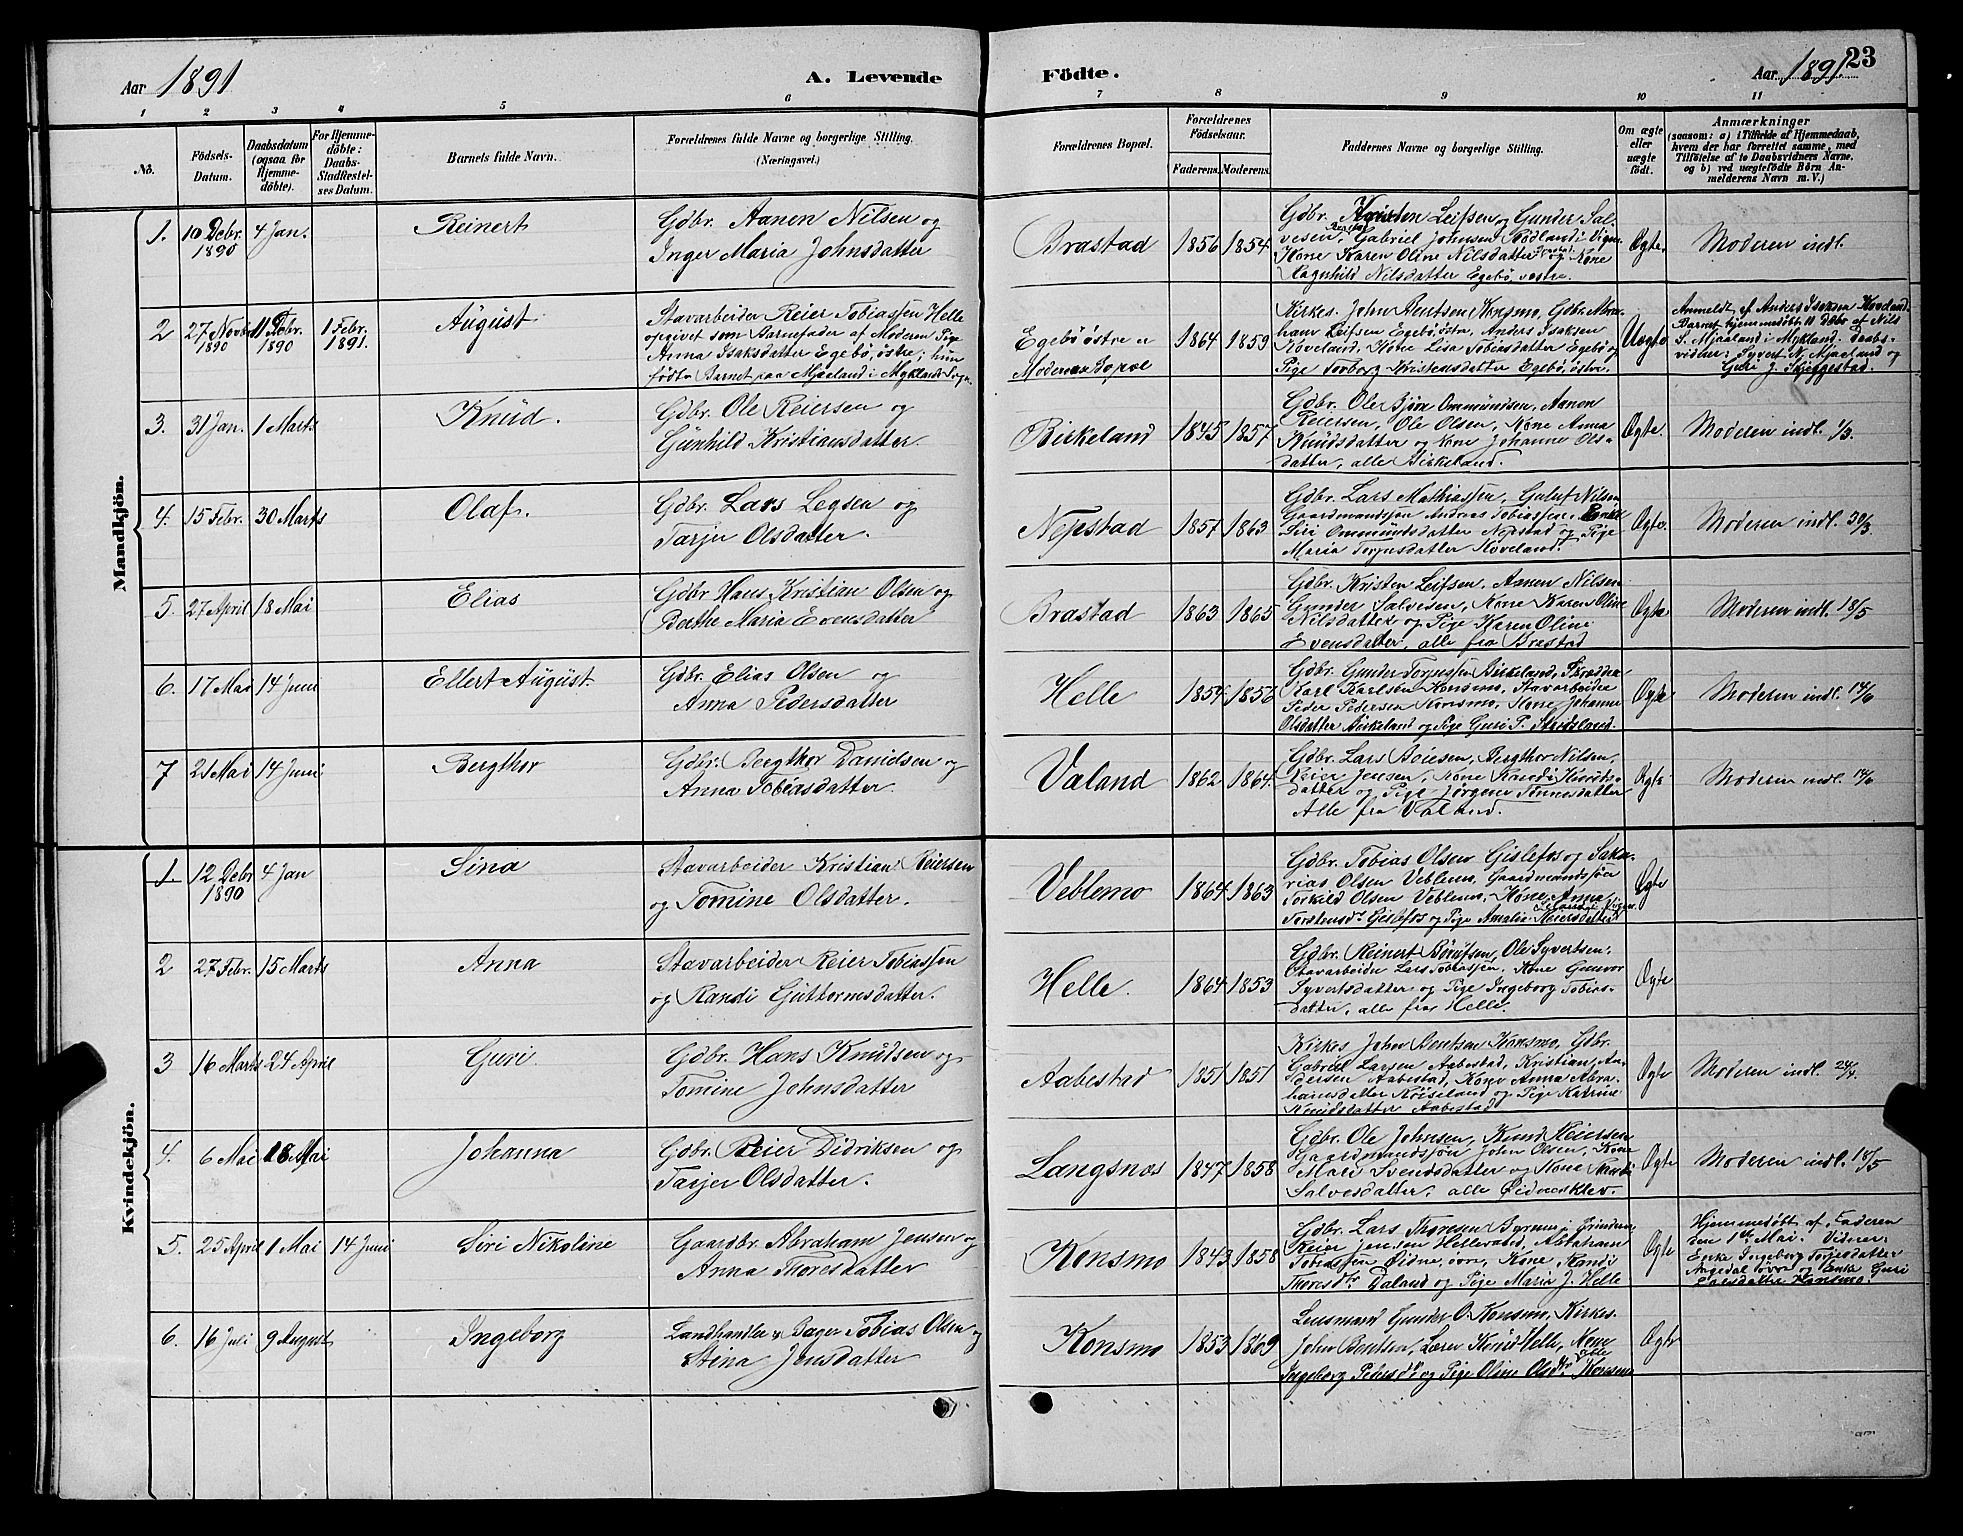 Aar 1891
A. Levende
Födte.
Aar 1891
23
1 2 3 4 5 6 7 8 9 10 11
No.
Födsels-
Datum.
Daabsdatum
(ogsaa for
Hjemme-
döbte).
For Hjemme-
döbte:
Daabs-
Stadfæstel-
ses Datum.
Barnets fulde Navn.
Forældrenes fulde Navne og borgerlige Stilling.
(Næringsvei.)
Forældrenes Bopæl.
Forældrenes
Födselsaar.
Faderens. Moderens.
Faddernes Navne og borgerlige Stilling.
Om ægte
eller
uægte
födt.
Anmærkninger
(saasom: a) i Tilfælde af Hjemmedaab,
hvem der har forrettet samme, med
Tilföielse af to Daabsvidners Navne,
og b) ved uægtefödte Börn An-
melderens Navn m. V.)
Mandkjön.
1. 10 Debr.
1890
4 Jan.
Reinert
Gdbr. Aanen Nilsen og
Inger Maria Johnsdatter
Brastad
1856 1854
Gdbr. Kristen Leifsen og Gunder Sal-
vesen, Brastad, Gabriel Johnsen Rödland i Vigm.
Kone Karen Oline Nilsdatter Brastad og Kone
Ragnhild Nilsdatter Egebö vestre.
Ægte.
Moderen indl.
2 27 Novbr
1890
11 Debr.
1890
1 Febr.
1891.
August
Stavarbeider Reier Tobiassen Helle
opgivet som Barnefader af Moderen Pige
Anna Isaksdatter Egebö, östre; hun
födte Barnet paa Mjaaland i Myklands Sogn.
Egebö östre er
Moderens Bopæl
1864 1859
Kirkes. John Bentsen Konsmo, Gdbr. Abra-
ham Leifsen Egebö östre, Anders Isaksen
Koveland, Kone Lisa Tobiasdatter Egebö og
Pige Torborg Kristensdatter Egebö, östre.
Uægte
Anmeldt af Anders Isaksen Koveland.
Barnet hjemmedöbt 11 Debr af Nils
S. Mjaaland i Mykland. Daabs-
vidner: Syvert N. Mjaaland og
Guri J. Skjeggestad.
3. 31 Jan. 1 Marts
Knud.
Gdbr. Ole Reiersen og
Gunhild Kristiansdatter.
Birkeland
1845 1857
Gdbr. Ole Bjørn Ommundsen, Aanen
Reiersen, Ole Olsen, Kone Anna
Knudsdatter og Kone Johanne Ols-
datter, alle Birkeland.
Ægte.
Moderen indl. 1/3.
4. 15 Febr. 30 Marts
Olaf.
Gdbr. Lars Legsen og
Tarjer Olsdatter.
Nepstad
1857 1863
Gdbr. Lars Mathiassen, Gulut Nilsen
Gaardmandssön Andreas Tobiassen, Enke
Siri Ommundsdatter Nepstad og Pige
Maria Torjusdatter Koveland.
Ægte.
Moderen indl. 30/3.
5. 27 April 18 Mai
Elias
Gdbr Hans Kristian Olsen og
Berthe Maria Evensdatter
Brastad
1863 1865
Gdbr. Kristen Leifsen, Aanen Nilsen
Gunder Salvesen, Kone Karen Oline
Nilsdatter og Pige Karen Oline
Evensdatter, alle fra Brastad
Ægte
Moderen indl. 18/5
6. 17 Mai 14 Juni
Ellert August.
Gdbr. Elias Olsen og
Anna Pedersdatter
Helle
1854. 1856
Gdbr. Gunder Torjussen Birkeland, Skrædder
Karl Karlsen Konsmo, Stavarbeider
Peder Pedersen Konsmo, Kone Johanne
Olsdatter Birkeland og Pige Guri P.
Ægte
Moderen indl. 14/6
7 21 Mai 14 Juni
Bergthor
Gdbr. Bergthor Danielsen og
Anna Tobiasdatter.
Valand
1862 1864.
Gdbr. Lars Boiesen, Bergthor Nilsen,
Reier Jensen, Kone Randi
datter og Pige Jörgene Tönnesdatter
Alle fra Valand.
Ægte
Moderen indl. 14/6
Kvindekjön.
1. 12 Debr
1890
4 Jan
Sina
Stavarbeider Kristian Reiersen
og Tomine Olsdatter.
Veblemo
1864 1863
Gdbr. Tobias Olsen Gislefos og Saka-
rias Olsen Veblemo, Gaardmandssön
Torkild Olsen Veblemo, Kone Anna
Torstensdr. Gislefos og Pige Amalie Reiersdatter
Ægte
2 27 Febr. 15 Marts
Anna
Stavarbeider Reier Tobiassen
og Randi Guttormsdatter.
Helle.
1864 1853
Gdbr. Reinert Börufsen, Ole Syvertsen,
Stavarbeider Lars Tobiassen, Kone Gunvor
Syvertsdatter og Pige Ingeborg Tobias-
datter, alle fra Helle.
Ægte
3 16 Marts 24 April
Guri.
Gdbr. Hans Knudsen og
Tomine Johnsdatter
Aabestad
1851 1851
Kirkes. John Bentsen Konsmo, Gdbr.
Gabriel Larsen Aabestad, Kristian An-
dersen Aabestad, Kone Anna Abra-
hamsdatter Röiseland og Pige Katrine
Knudsdatter Aabestad
Ægte
Moderen indl. 24/4.
4. 6 Mai 18 Mai
Johanna
Gdbr. Reier Didriksen og
Tarjer Olsdatter.
Langsnæs
1847 1858
Gdbr. Ole Johnsen, Knud Reiersen
Gaardmandssön John Olsen, Kone
Mari Svendsdatter og Kone Randi
Salvesdatter, alle Öidnesklev.
Ægte
Moderen indl. 18/5
5. 25 April 1 Mai 14 Juni
Siri Nikoline
Gaardbr. Abraham Jensen og
Anna Thoresdatter
Konsmo
1843 1858
Gdbr. Lars Thoresen Byremo i Grindem
Reier Jensen Hellevand, Abraham
Tobiassen Öidne, övre, Kone Randi
Thoresdtr Daland og Pige Maria J. Helle
Ægte
Hjemmedöbt af Faderen
den 1ste Mai. Vidner:
Enke Ingeborg Torjesdatter
Aagedal övre og Enke Guri
datter Konsmo.
6. 16 Juli 9 August
Ingeborg
Landhandler & Bager Tobias Olsen og
Stina Jensdatter
Konsmo
1853 1869
Lensmand Gunder O. Konsmo, Kirkes.
John Bentsen, Lærer Knud Helle, Kone
Ingeborg Pedersdtr og Pige Oline Olsdtr. alle Konsmo
Ægte